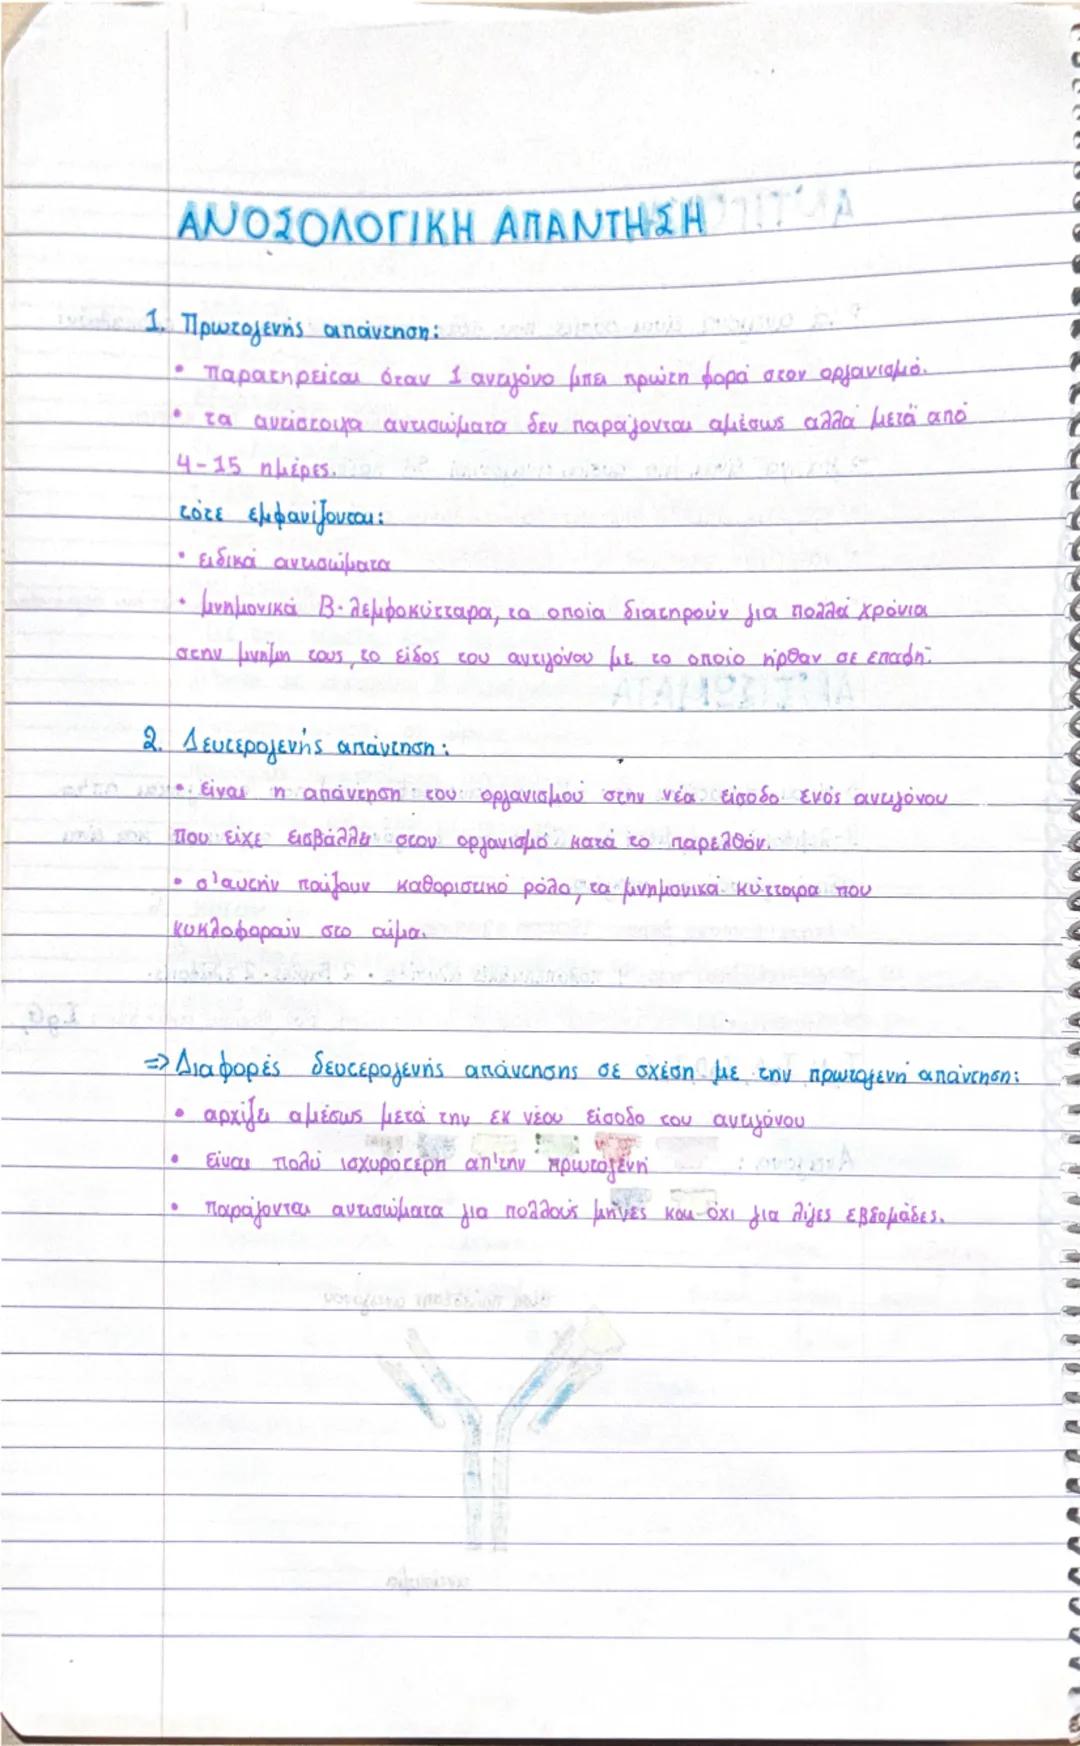 ΑΝΟΣΟΛΟΓΙΚΗ ΑΠΑΝΤΗΣΗ
1. Πρωτογενής απάντηση:
• παρατηρείται όταν 1 αντιγόνο μπει πρώτη φορά στον οργανισμό.
• τα αντίστοιχα αντισώματα δεν παράγονται αμέσως αλλά μετά από
4-15 ημέρες.
τότε εμφανίζονται:
• ειδικά αντισώματα
• μνημονικά Β-λεμφοκύτταρα, τα οποία διατηρούν για πολλά χρόνια
στην μνήμη τους, το είδος του αντιγόνου με το οποίο ήρθαν σε επαφή.
2. Δευτερογενής απάντηση:
• είναι η απάντηση του οργανισμού στην νέα είσοδο ενός αντιγόνου
που είχε εισβάλλει στον οργανισμό κατά το παρελθόν.
• σ'αυτήν παίζουν καθοριστικό ρόλο, τα μνημονικά κύτταρα που
κυκλοφορούν στο αίμα.
=> Διαφορές δευτερογενής απάντησης σε σχέση με την πρωτογενή απάντηση:
• αρχίζει αμέσως μετά την εκ νέου είσοδο του αντιγόνου
• είναι πολύ ισχυρότερη απ'την πρωτογενή
• παράγονται αντισώματα για πολλούς μήνες και όχι για λίγες εβδομάδες.